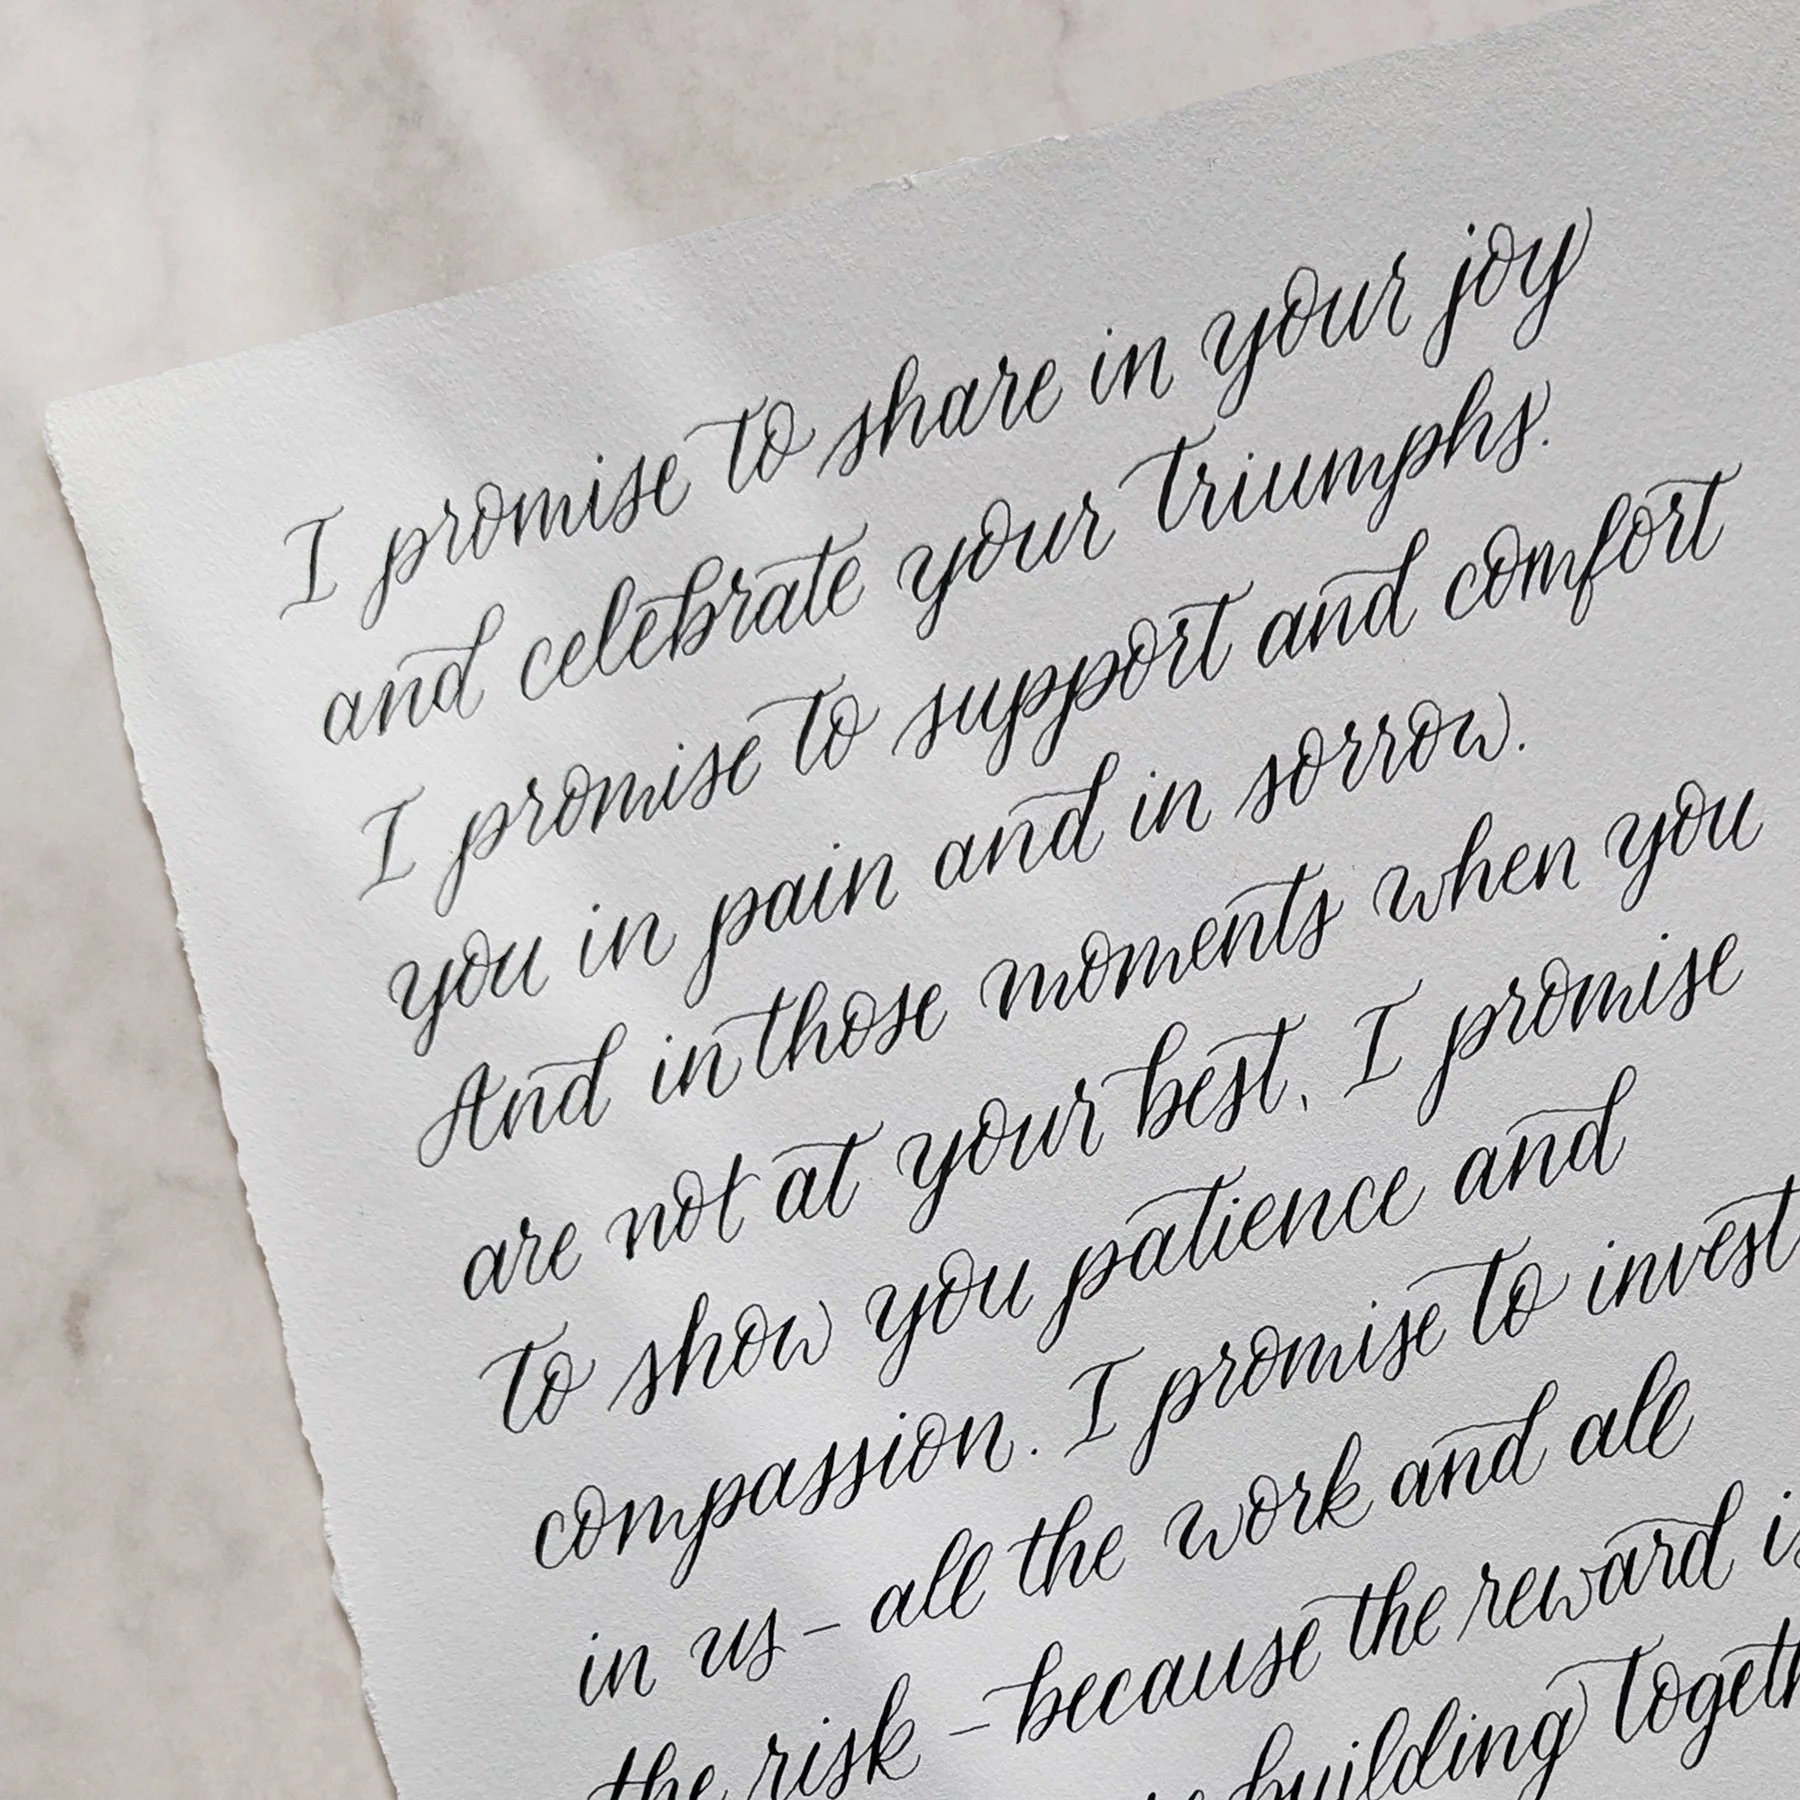 I promise to share in your joy
and celebrate your triumphs.
I promise to support and comfort
you in pain and in sorrow.
And in those moments when you
are not at your best, I promise
to show you patience and
compassion. I promise to invest
in us – all the work and all
the risk – because the reward is
building togeth